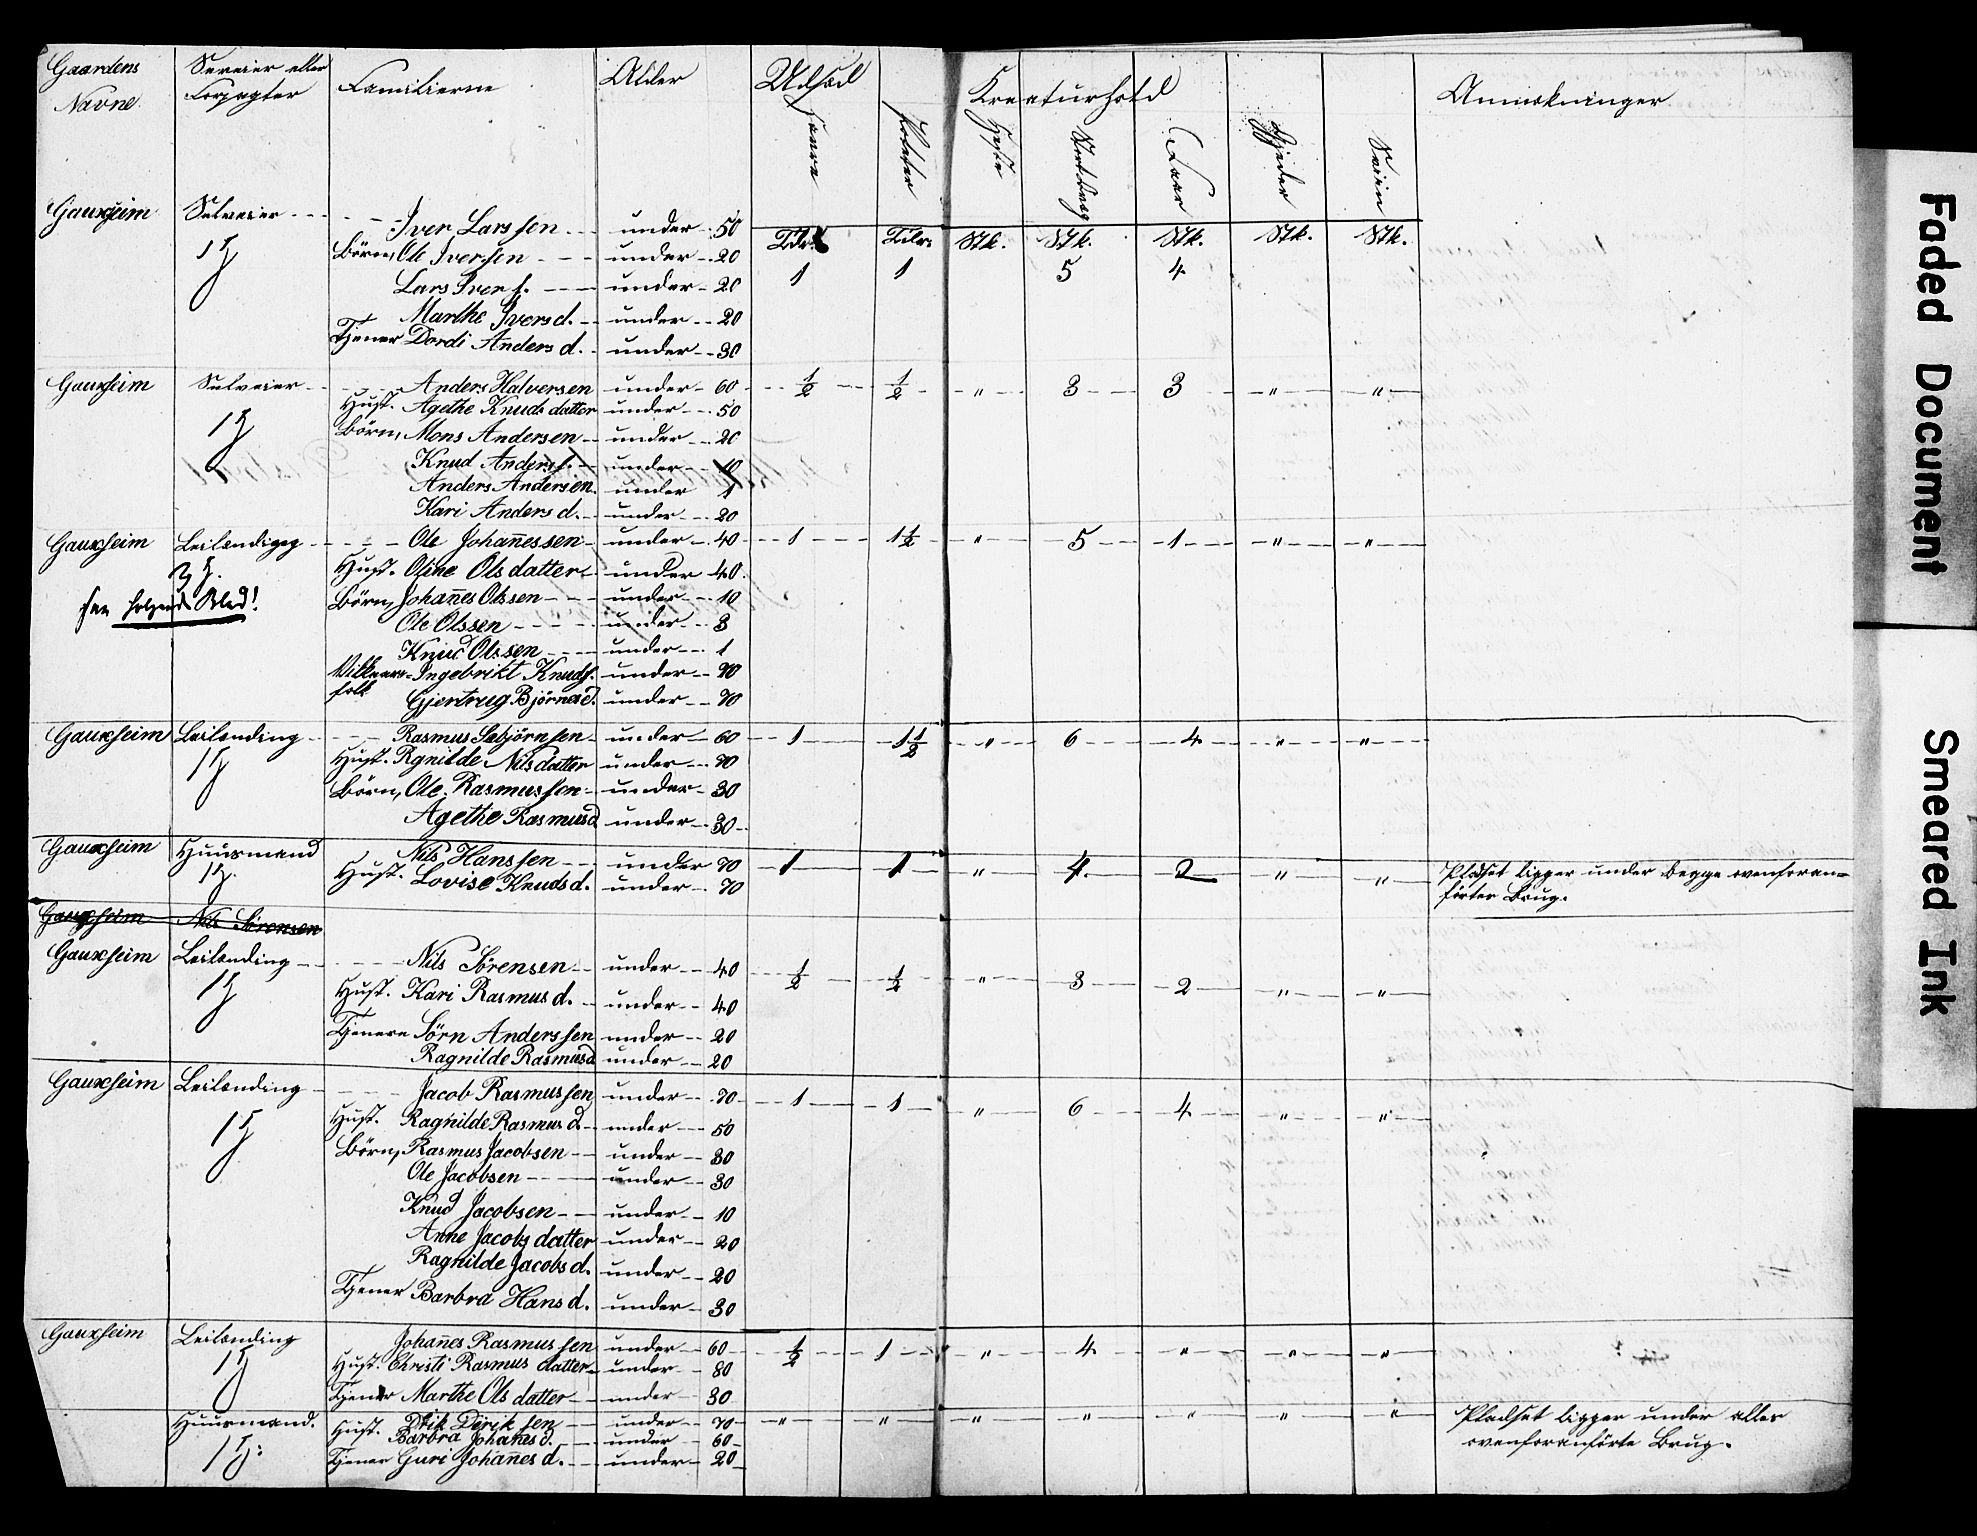 Gaardens Navne | Selveier eller Forpagter | Familierne | Alder | Udsæd | Kreaturhold | Anmærkninger
Havre | Poteter | Heste | Storfæ | Faar | Gjeder | Sviin
Tdr. | Tdr. | Stk. | Stk. | Stk. | Stk. | Stk.
Gauxheim | Selveier | Iver Larssen | under 50
Börn, Ole Iverssen | under 20 | 1 | 1 | 5 | 4
Lars Ivers. | under 20
Marthe Iversd. | under 20
Tjener Dordi Andersd. | under 30
Gauxheim | Selveier | Anders Halversen | under 60 | ½ | ½ | " | 3 | 3 | " | "
Hust. Agethe Knudsdatter | under 50
Börn, Mons Andersen | under 20
Knud Anders. | under 10
Anders Andersen | under
Kari Anders d. | under 20
Gauxheim | Leilending | Ole Johan̄essen | under 40 | 1 | 1½ | " | 5 | 1 | " | "
Hust. Oline Olsdatter | under 40
Börn, Johan̄es Olssen | under 10
Ole Olssen | under 3
Knud Olssen | under 1
Ingebrikt Knuds. | under 70
folk Gjertrug Björnsd. | under 70
Gauxheim | Leilending | Rasmus Sebjörnsen | under 60 | 1 | 1½ | " | 6 | 4 | " | "
Hust. Rgnilde Nilsdatter | under 70
Börn, Ole Rasmussen | under 30
Agethe Rasmusd | under 30
Gauxheim | Huusmand | Nils Hanssen | under 70 | 1 | 1 | " | 4 | 2 | " | " | Pladset ligger under begge ovenforan=
Hust. Lovise Knudsd. | under 70 | förter Brug.
Gauxheim | Nils Sörensen
Gauxheim | Leilending | Nils Sörensen | under 40 | ½ | ½ | " | 3 | 2 | " | "
Hust. Kari Rasmusd. | under 40
Tjenere Sörn Anderssen | under 20
Ragnilde Rasmusd | under 20
Gauxheim | Leilending | Jacob Rasmussen | under 70 | 1 | 1 | " | 6 | 4 | " | "
Hust. Ragnilde Rasmusd. | under 50
Börn, Rasmus Jacobsen | under 30
Ole Jacobsen | under 30
Knud Jacobsen | under 10
Anne Jacobsdatter | under 20
Ragnilde Jacobsd. | under 20
Tjener Barbra Hansd. | under 30
Gauxheim | Leilending | Johan̄es Rasmussen | under 60 | ½ | 1 | " | 4 | " | " | "
Hust. Christi Rasmusdatter | under 80
Tjener Marthe Olsdatter | under 30
Huusmand. | Dirik Diriksen | under 70 | " | " | " | " | " | " | " | Pladset ligger under alle
Hust. Barbra Johan̄esd. | under 60 | ovenforanförte Brug.
Tjener Guri Johan̄esd. | under 20
Faded Document
Smeared Ink